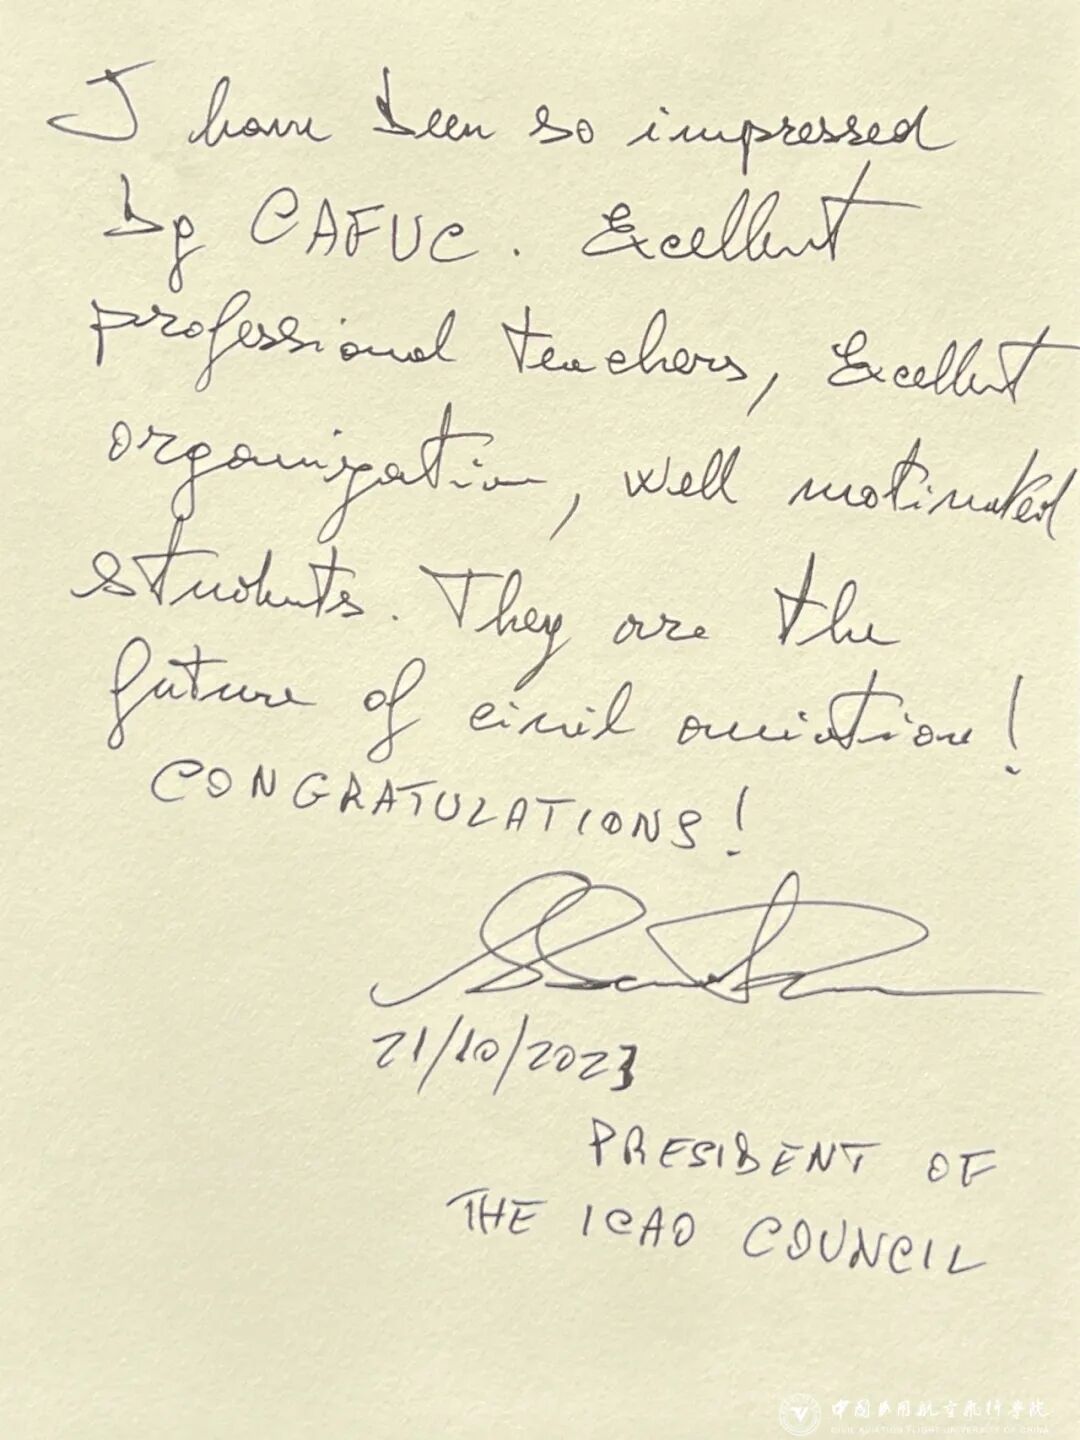 I have been so impressed
by CAFUC. Excellent
professional teachers, Excellent
organization, well motivated
students. They are the
future of civil aviation!
CONGRATULATIONS!
21/10/2023
PRESIDENT OF
THE ICAO COUNCIL
中国民用航空飞行学院
CIVIL AVIATION FLIGHT UNIVERSITY OF CHINA